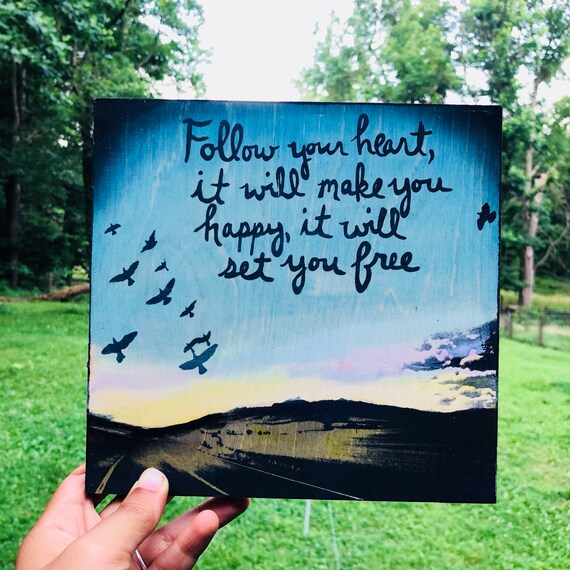 Follow your heart,
it will make you
happy, it will
set you free